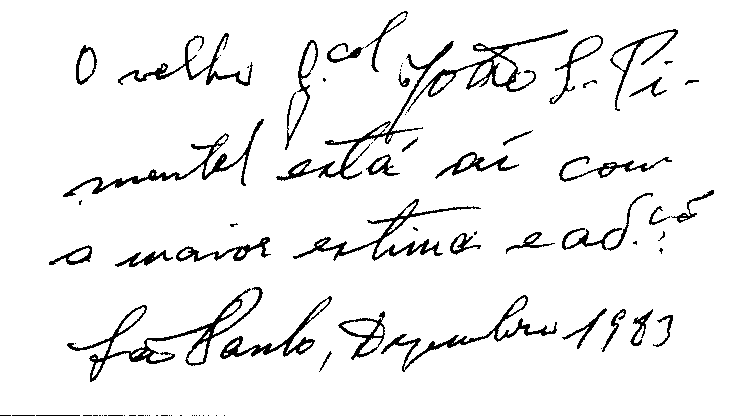 O velho g.col João S. Pi-
mentel está aí com
a maior estima e ad.ção
São Paulo, Dezembro 1983